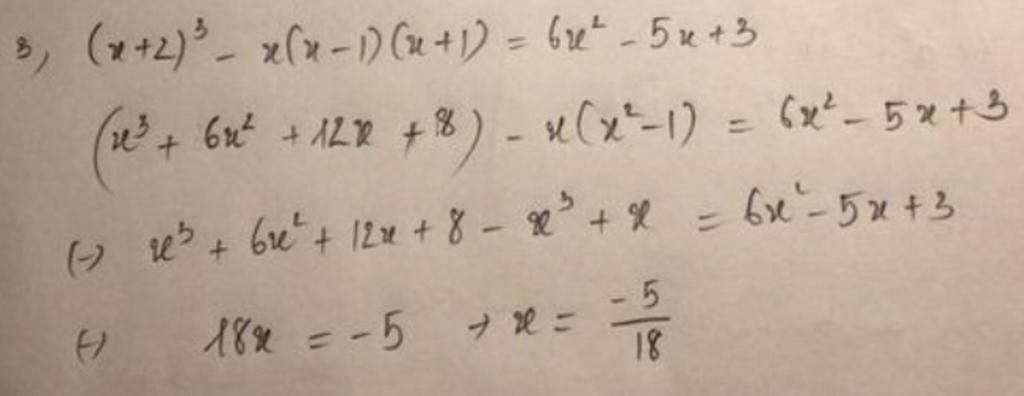 3, (x+2)³ - x(x-1)(x+1) = 6x² - 5x + 3
(x³ + 6x² + 12x + 8) - x(x²-1) = 6x² - 5x + 3
(-) x³ + 6x² + 12x + 8 - x³ + x = 6x² - 5x + 3
(-) 18x = -5 → x = -5/18